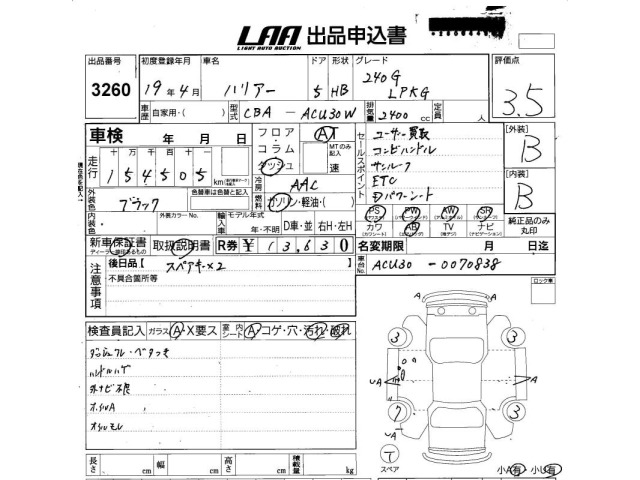 LAA 出品申込書
LIGHT AUTO AUCTION
出品番号 3260
初度登録年月 19年4月
車名 ハリアー
ドア 5 形状 HB
グレード 240G
LPKG
評価点 3.5
車歴 自家用・( )
型式 CBA - ACU30W
排気量 2400 cc
定員 人
車検 年 月 日
フロア・コラム ダッシュ
AT
MTのみ記入
速
セールスポイント
ユーザー買取
コンビハンドル
サンルーフ
ETC
Dパワーシート
[外装] B
[内装] B
走行 十万 千百十
154505 km
冷房 AAC
外装色 ブラック
色替車は色替と記入
燃料 ガソリン・軽油・( )
内装色
外装カラーNo.
輸入車 モデル年式
年・不明
D車・並 右H・左H
PS PW AW SR
カワ AB TV ナビ
純正品のみ丸印
新車保証書 取扱説明書 R券 ¥ 13,630
名変期限 月 日迄
注意事項
後日品 スペアキー×2
不具合箇所等
車台No. ACU30 - 0070838
ロック車
検査員記入 ガラス A・X要ス 室内 シート A コゲ・穴・汚れ・破れ
ハンドルハゲ
外ナビ不良
オイルモレ
3 3
A UA A
7 3
UA
T
スペア
長さ cm 幅 cm 高さ cm 積載量 kg
小A有 小U有